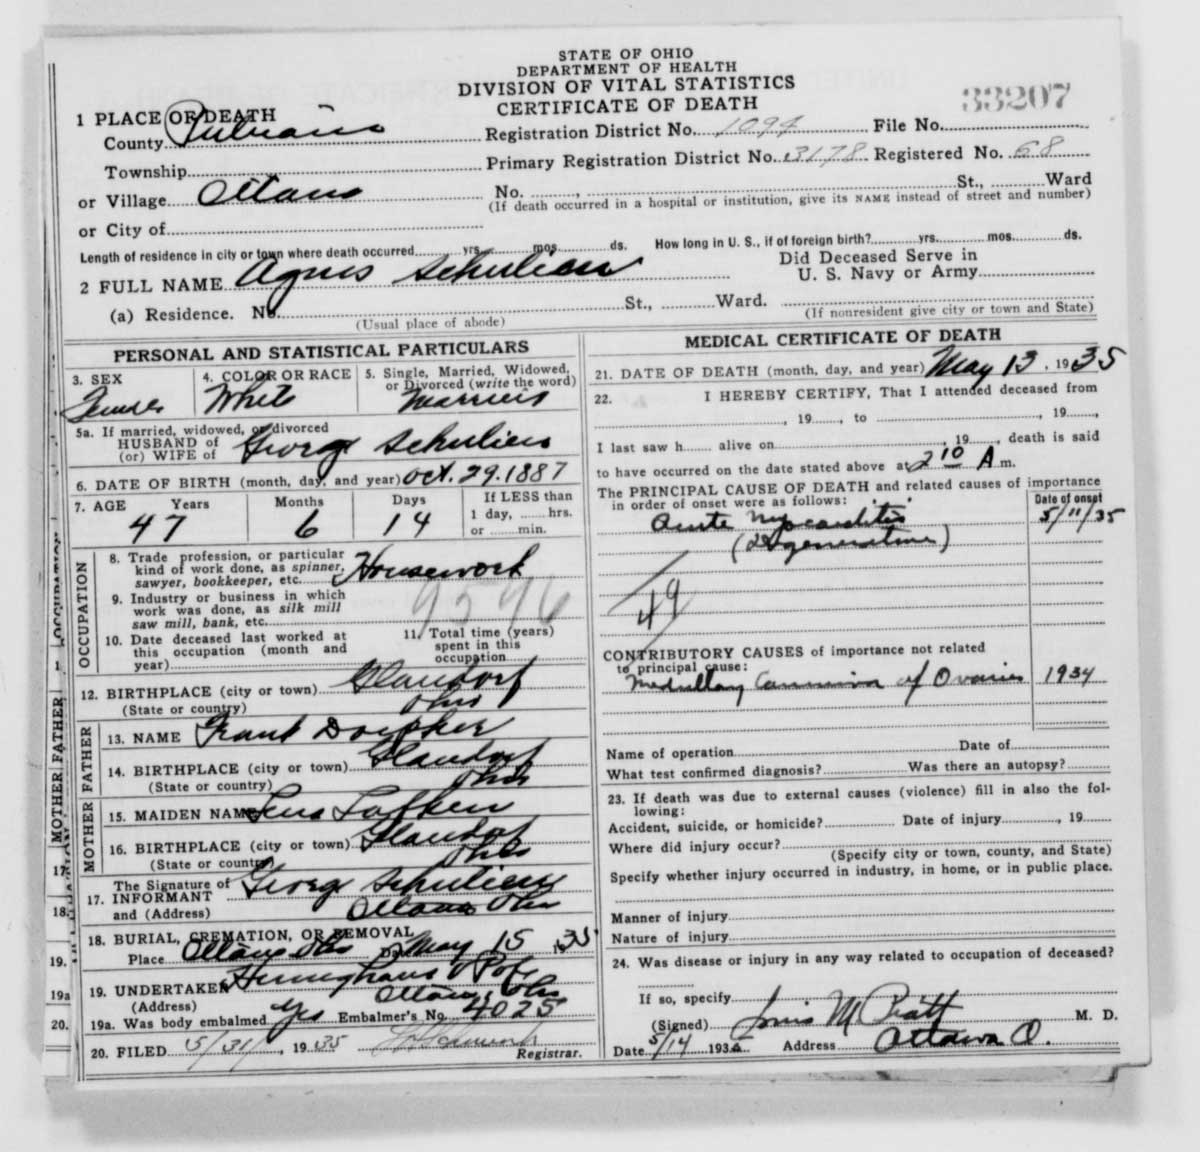 STATE OF OHIO
DEPARTMENT OF HEALTH
DIVISION OF VITAL STATISTICS
CERTIFICATE OF DEATH
33207
1 PLACE OF DEATH
County Putnam
Registration District No. 1094 File No.
Township
Primary Registration District No. 3178 Registered No. 68
or Village Ottawa
No. , St., Ward
(If death occurred in a hospital or institution, give its NAME instead of street and number)
or City of
Length of residence in city or town where death occurred yrs. mos. ds. How long in U. S., if of foreign birth? yrs. mos. ds.
2 FULL NAME Agnes Schulien
Did Deceased Serve in
U. S. Navy or Army
(a) Residence. No. St., Ward.
(Usual place of abode)
(If nonresident give city or town and State)
PERSONAL AND STATISTICAL PARTICULARS
3. SEX
Female
4. COLOR OR RACE
White
5. Single, Married, Widowed,
or Divorced (write the word)
Married
5a. If married, widowed, or divorced
HUSBAND of
(or) WIFE of George Schulien
6. DATE OF BIRTH (month, day, and year) Oct. 29. 1887
7. AGE Years Months Days
47 6 14
If LESS than
1 day, hrs.
or min.
OCCUPATION
8. Trade, profession, or particular
kind of work done, as spinner,
sawyer, bookkeeper, etc. Housework
9. Industry or business in which
work was done, as silk mill
saw mill, bank, etc.
9596
10. Date deceased last worked at
this occupation (month and
year)
11. Total time (years)
spent in this
occupation
12. BIRTHPLACE (city or town) Glandorf
(State or country) Ohio
FATHER
13. NAME Frank
14. BIRTHPLACE (city or town) Glandorf
(State or country) Ohio
MOTHER
15. MAIDEN NAME Lena
16. BIRTHPLACE (city or town) Glandorf
(State or country) Ohio
17. The Signature of
INFORMANT George Schulien
and (Address) Ottawa Ohio
18. BURIAL, CREMATION, OR REMOVAL
Place Ottawa Ohio Date May 15 1935
19. UNDERTAKER
(Address) Ottawa, Ohio
19a. Was body embalmed Yes Embalmer's No. 4025
20. FILED 5/31/, 1935
Registrar.
MEDICAL CERTIFICATE OF DEATH
21. DATE OF DEATH (month, day, and year) May 13, 1935
22. I HEREBY CERTIFY, That I attended deceased from
, 19 , to , 19 ,
I last saw h alive on , 19 , death is said
to have occurred on the date stated above at 2 10 A m.
The PRINCIPAL CAUSE OF DEATH and related causes of importance
in order of onset were as follows:
Date of onset
Acute Myocarditis 5/11/35
(Degeneration)
49
CONTRIBUTORY CAUSES of importance not related
to principal cause:
Medullary Carcinoma of Ovaries 1934
Name of operation Date of
What test confirmed diagnosis? Was there an autopsy?
23. If death was due to external causes (violence) fill in also the fol-
lowing:
Accident, suicide, or homicide? Date of injury , 19
Where did injury occur?
(Specify city or town, county, and State)
Specify whether injury occurred in industry, in home, or in public place.
Manner of injury
Nature of injury
24. Was disease or injury in any way related to occupation of deceased?
If so, specify
(Signed) Louis M Piatt M. D.
Date 5/14 193 Address Ottawa O.
OCCUPATION
MOTHER FATHER
17.
18.
19.
19a
20.